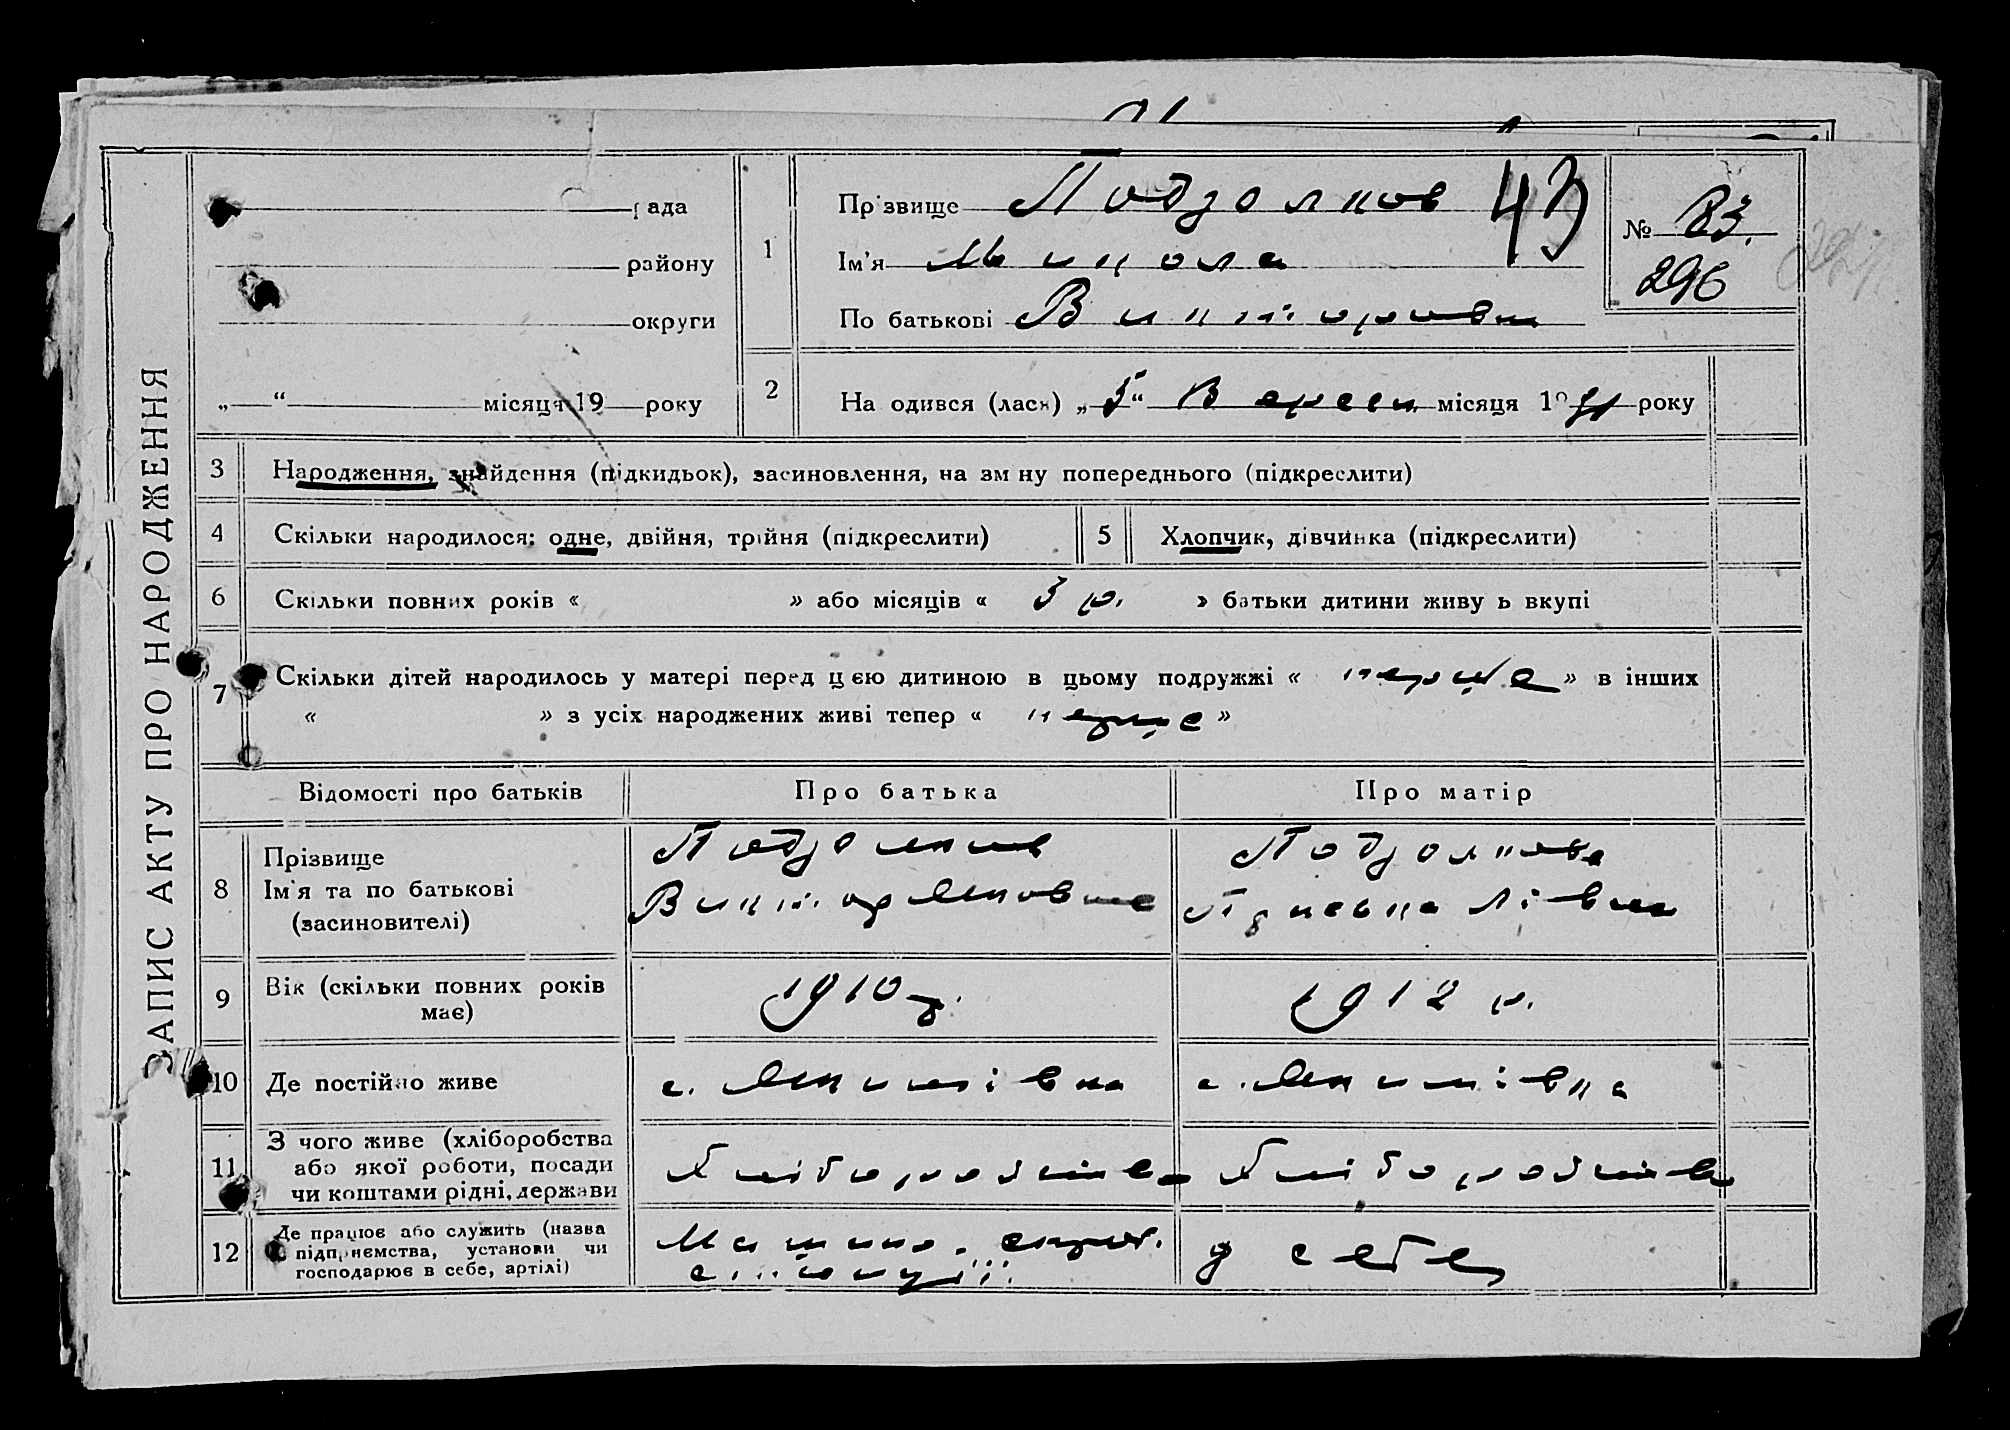 ЗАПИС АКТУ ПРО НАРОДЖЕННЯ
рада
району
округи
„ “ місяця 19 року
1
Прізвище
43
Ім’я Микола
По батькові Вікторович
№ 83.
296
2
На одився (лася) „5“ Версен місяця 19 31 року
3 Народження, знайдення (підкидьок), засиновлення, на зм ну попереднього (підкреслити)
4 Скільки народилося: одне, двійня, трійня (підкреслити)
5 Хлопчик, дівчинка (підкреслити)
6 Скільки повних років « » або місяців « 3 р. » батьки дитини живу ь вкупі
7 Скільки дітей народилось у матері перед цєю дитиною в цьому подружжі « перше » в інших
« » з усіх народжених живі тепер « перше »
Відомості про батьків
Про батька
Про матір
8 Прізвище
Ім’я та по батькові
(засиновителі)
9 Вік (скільки повних років
має)
1910 р.
1912 р.
10 Де постійно живе
с. Якимівка
с. Якимівка
11 З чого живе (хліборобства
або якої роботи, посади
чи коштами рідні, держави
Хліборобство
Хліборобство
12 Де працює або служить (назва
підприємства, установи чи
господарює в себе, артілі)
у себе